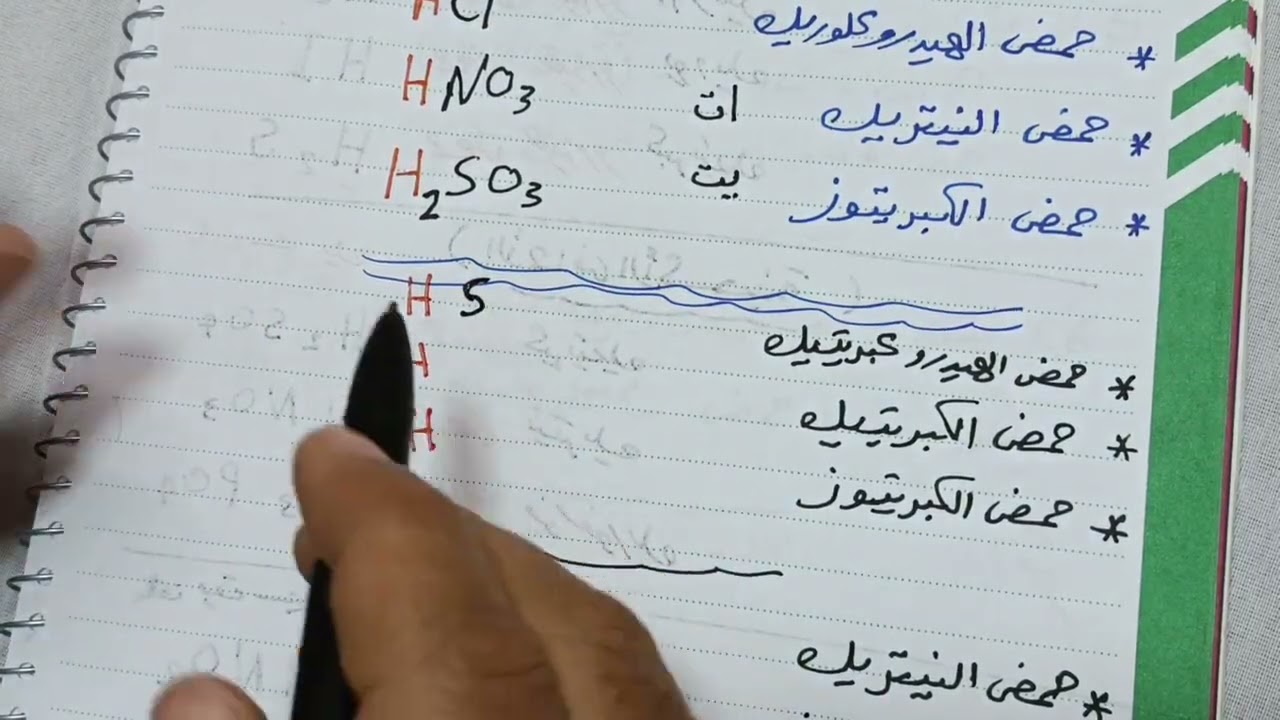 * حمض الهيدروكلوريك HCl
* حمض النيتريك ات HNO3
* حمض الكبريتوز يت H2SO3
H S
* حمض الهيدروكبريتيك
H
* حمض الكبريتيك H
* حمض الكبريتوز
* حمض النيتريك